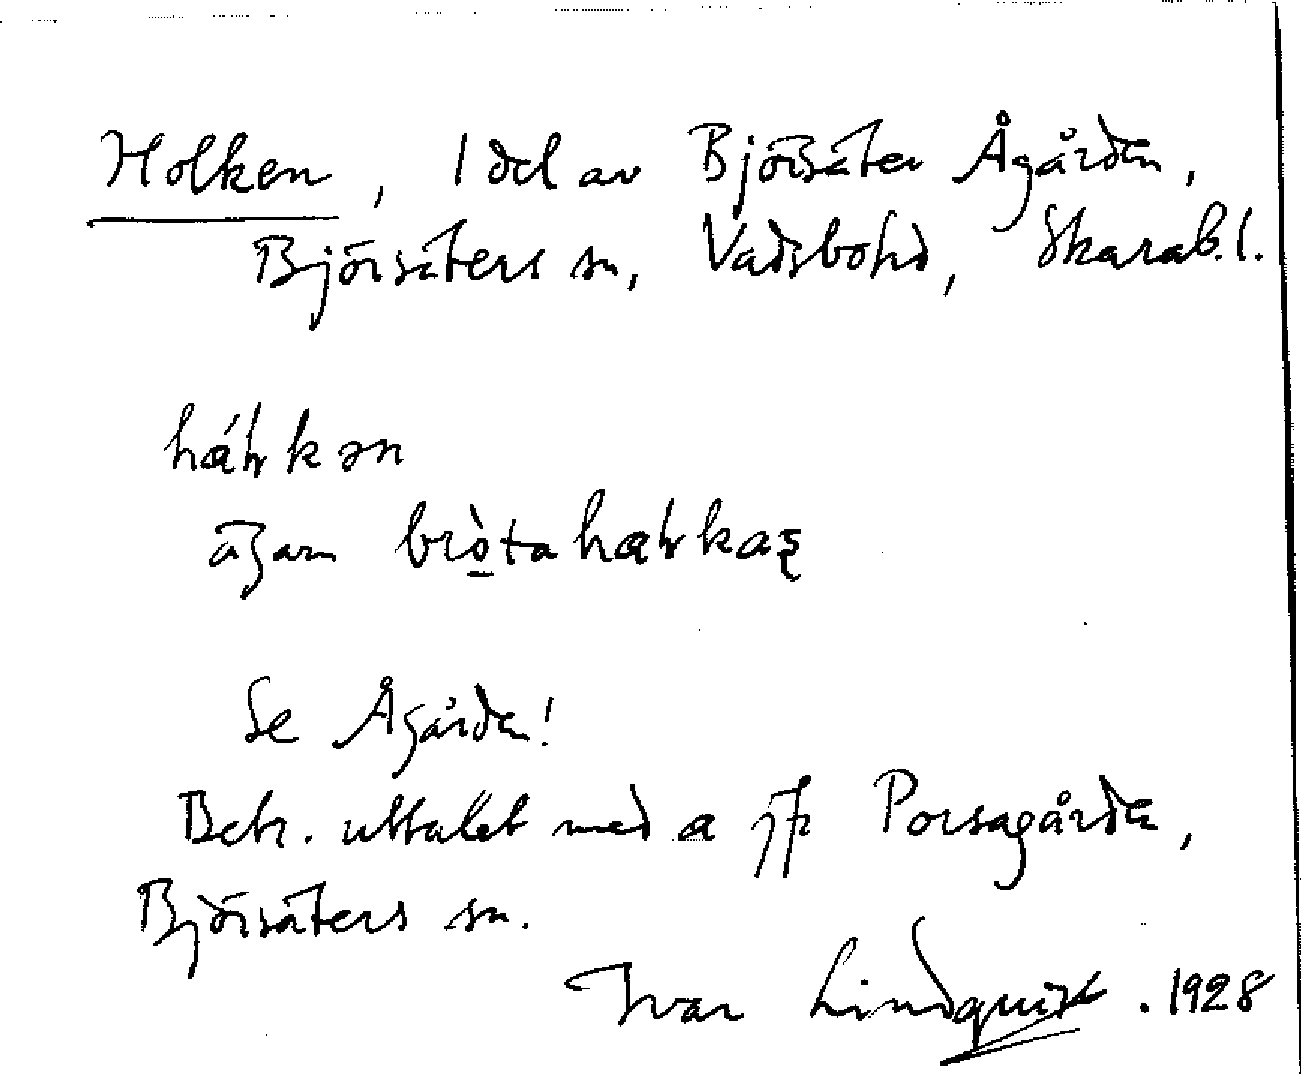 Holken, 1 del av Björsäter Ågården,
Björsäters sn, Vadsbohd, Skarab.l.
Se Ågården!
Betr. uttalet med a jfr Porsagården,
Björsäters sn.
Ivar Lindquist. 1928